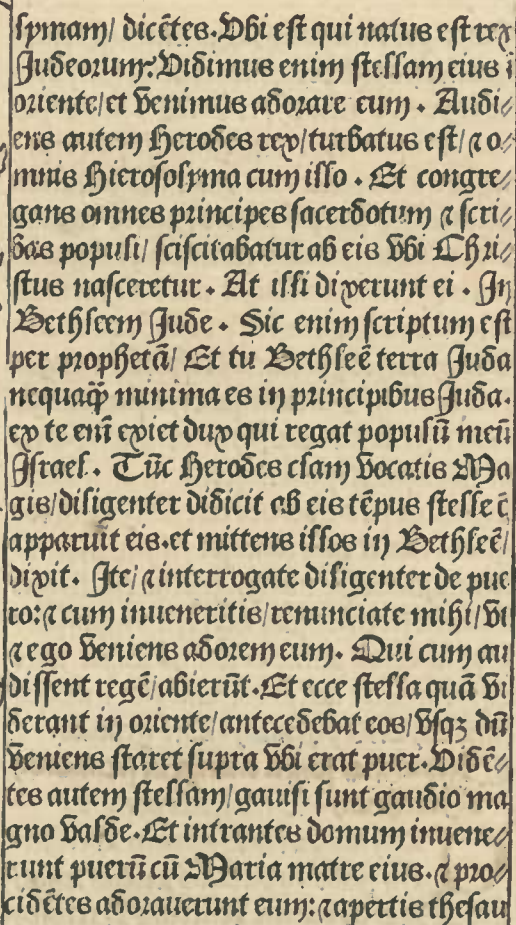 lymam/ dicẽtes. Vbi est qui natus est rex
Judeorum? Vidimus enim stellam eius ĩ
oriente/ et venimus adorare eum. Audi⸗
ens autem Herodes rex/ turbatus est/ ⁊ o⸗
mnis Hierosolyma cum illo. Et congre⸗
gans omnes principes sacerdotum ⁊ scri⸗
bas populi/ sciscitabatur ab eis vbi Chri⸗
stus nasceretur. At illi dixerunt ei. In
Bethleem Jude. Sic enim scriptum est
per prophetã/ Et tu Bethleẽ terra Juda
nequaq̃ minima es in principibus Juda.
ex te enĩ exiet dux qui regat populũ meũ
Israel. Tũc Herodes clam vocatis Ma
gis/ diligenter didicit ab eis tẽpus stelle q̃
apparuit eis. et mittens illos in Bethleẽ/
dixit. Ite/ ⁊ interrogate diligenter de pue
ro: ⁊ cum inueneritis/ renunciate mihi/ vt
⁊ ego veniens adorem eum. Qui cum au
dissent regẽ/ abierũt. Et ecce stella quã vi
derant in oriente/ antecedebat eos/ vsqꝫ dũ
veniens staret supra vbi erat puer. Vidẽ⸗
tes autem stellam/ gauisi sunt gaudio ma
gno valde. Et intrantes domum inuene⸗
runt puerũ cũ Maria matre eius. ⁊ pro⸗
cidẽtes adorauerunt eum: ⁊ apertis thesau